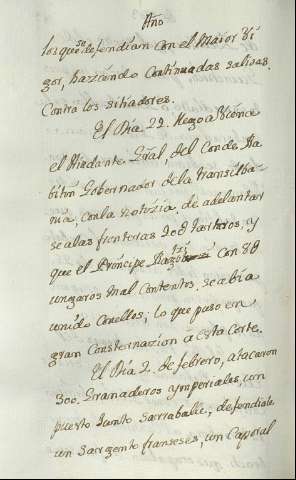 Año
los que se defendian con el Maior Vi
gor, haziendo Continuadas salidas
Contra los sitiadores.
El Dia 22. llego a Viena
el Aiudante Gñal, del Conde Ra
bitin Gobernador de la transilba
nia, con la notizia, de adelantar
se a las fronteras 20@ tartaros, y
que el Prinzipe Ragotsi con 8@
ungaros Mal Contentos, se abia
unido Conellos; lo que puso en
gran Consternazion a esta Corte.
El Dia 2. de febrero, atacaron
300. Granaderos ymperiales, un
puerto Junto Sarraballe, defendiale
un Sargento franseses, un Caporal